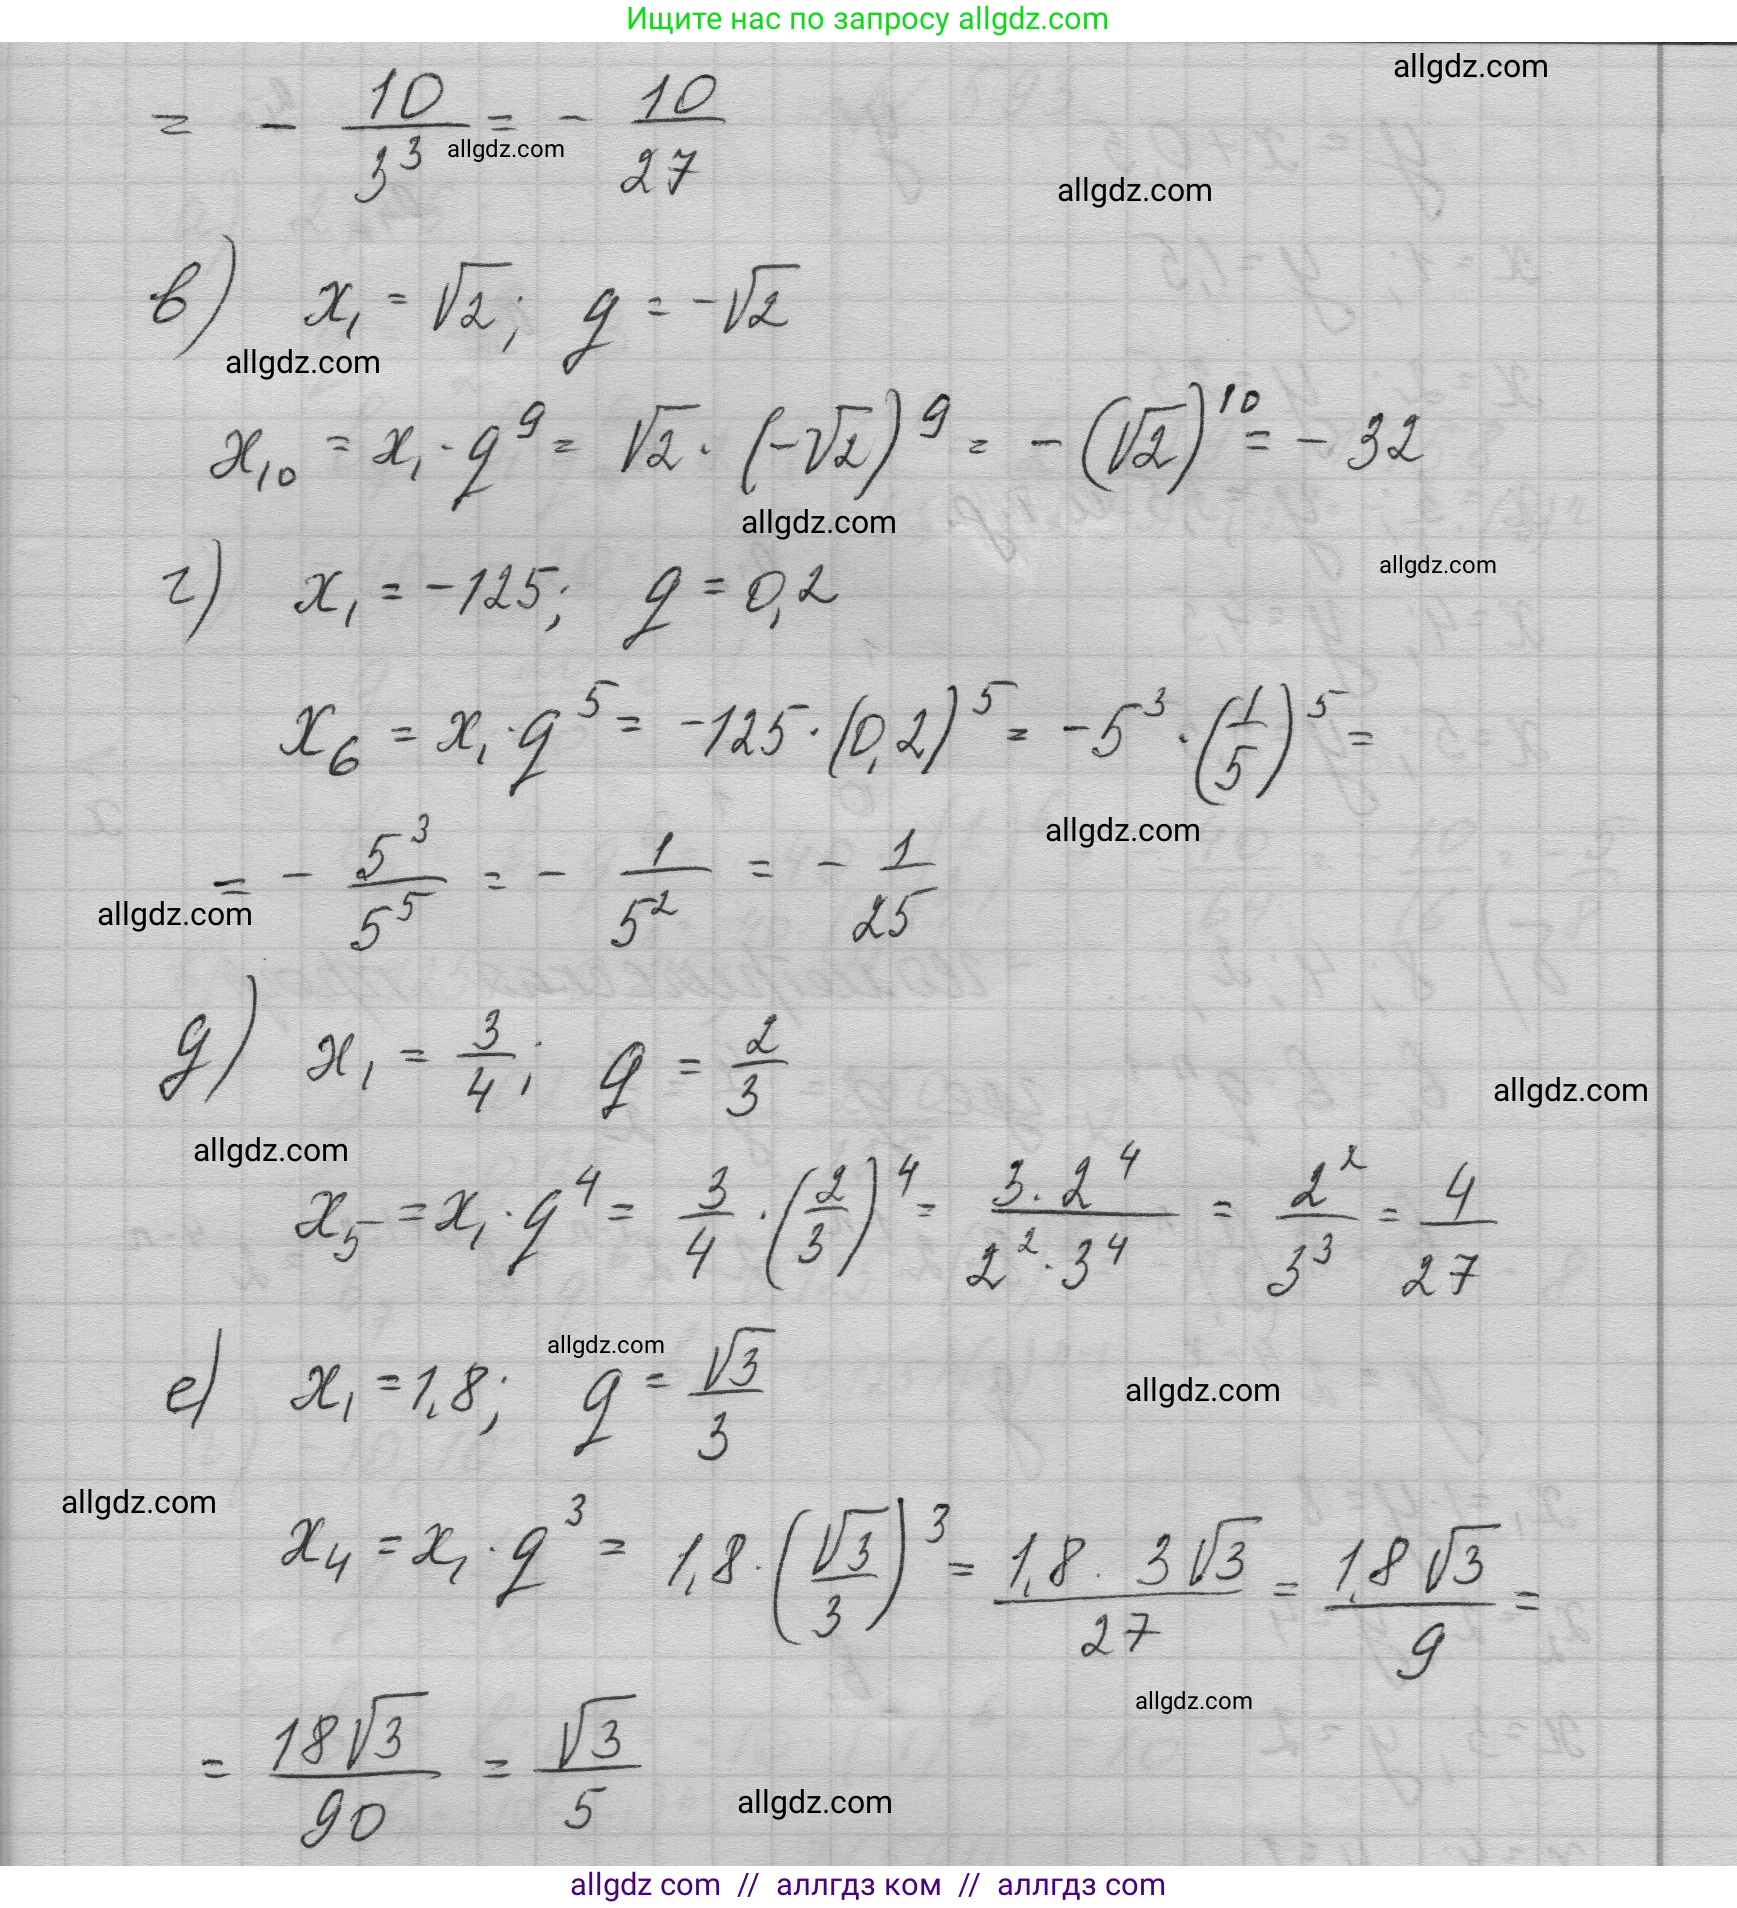 Ищите нас по запросу allgdz.com
allgdz.com
= - 10/3^3 = - 10/27
allgdz.com
allgdz.com
в) x₁ = √2; q = -√2
allgdz.com
x₁₀ = x₁ · q^9 = √2 · (-√2)^9 = -(√2)^10 = - 32
allgdz.com
allgdz.com
г) x₁ = -125; q = 0,2
x₆ = x₁ · q^5 = -125 · (0,2)^5 = -5^3 · (1/5)^5 =
allgdz.com
= - 5^3/5^5 = - 1/5^2 = - 1/25
allgdz.com
д) x₁ = 3/4; q = 2/3
allgdz.com
allgdz.com
x₅ = x₁ · q^4 = 3/4 · (2/3)^4 = 3·2^4/2^2·3^4 = 2^2/3^3 = 4/27
allgdz.com
е) x₁ = 1,8; q = √3/3
allgdz.com
allgdz.com
x₄ = x₁ · q^3 = 1,8 · (√3/3)^3 = 1,8 · 3√3/27 = 1,8√3/9 =
allgdz.com
= 18√3/90 = √3/5
allgdz.com
allgdz com // аллгдз ком // аллгдз com